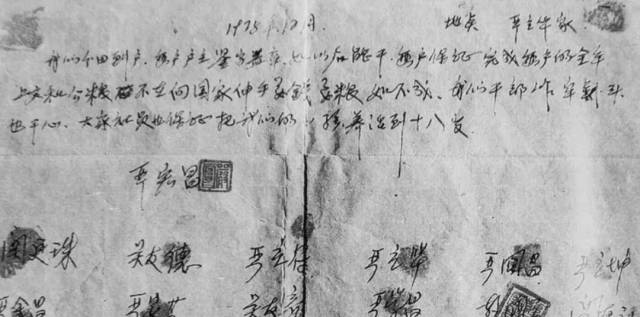 1978.12月. 地点 严立华家
我们分田到户. 每户户主签字盖章. 如以后能干. 每户保证完成每户的全年
上交和公粮 不在向国家伸手要钱要粮 如不成. 我们干部作牢刹头
也干心. 大家社员也保证把我们的小孩养活到十八岁.
严宏昌
关廷珠 关友德 严立符 严立华 严国昌 严立坤
严金昌 严家芝 关友章 严学昌